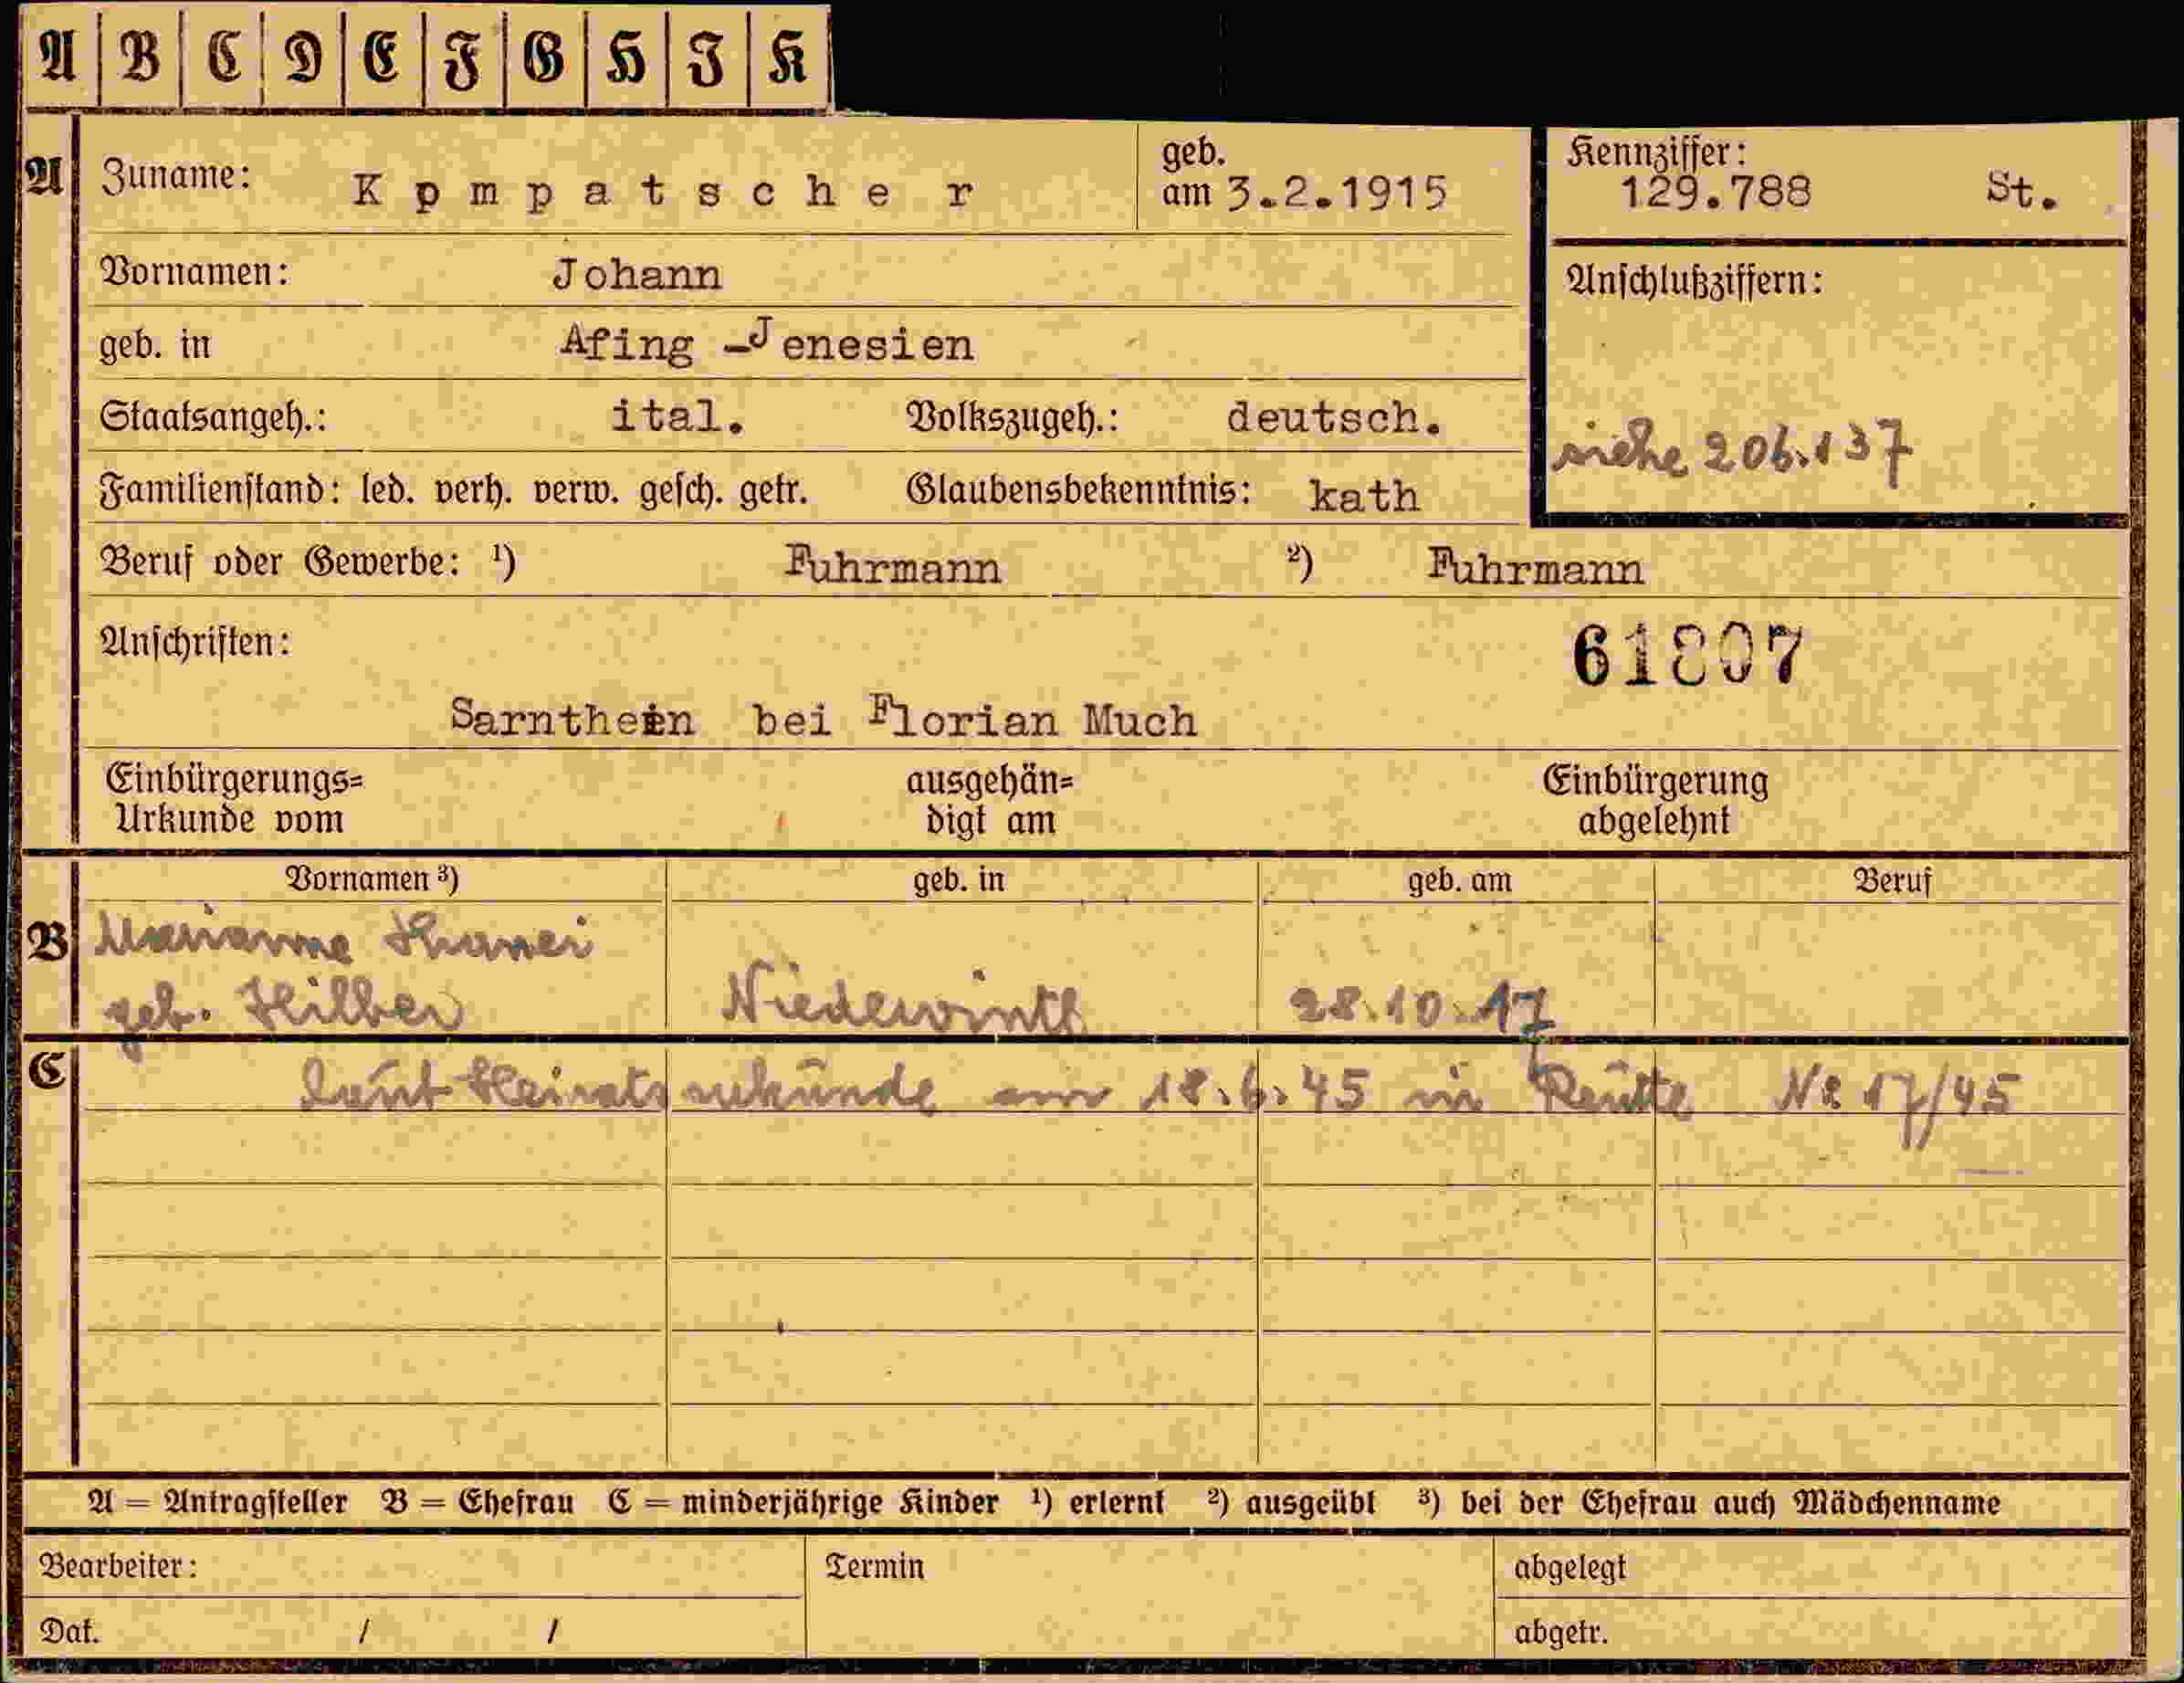 A B C D E F G H I K
A Zuname: Kpmpatscher geb. am 3.2.1915 Kennziffer: 129.788 St.
Vornamen: Johann Anschlußziffern:
geb. in Afing -Jenesien
Staatsangeh.: ital. Volkszugeh.: deutsch. siehe 206.137
Familienstand: led. verh. verw. gesch. getr. Glaubensbekenntnis: kath
Beruf oder Gewerbe: ¹) Fuhrmann ²) Fuhrmann
Anschriften: 61807
Sarnthein bei Florian Much
Einbürgerungs= ausgehän= Einbürgerung
Urkunde vom digt am abgelehnt
Vornamen ³) geb. in geb. am Beruf
B Marianne
geb. Hilber Niedervintl 28.10.17
C laut Heiratsurkunde am 18.6.45 in Reutte No 17/45
A = Antragsteller B = Ehefrau C = minderjährige Kinder ¹) erlernt ²) ausgeübt ³) bei der Ehefrau auch Mädchenname
Bearbeiter: Termin abgelegt
Dat. / / abgetr.